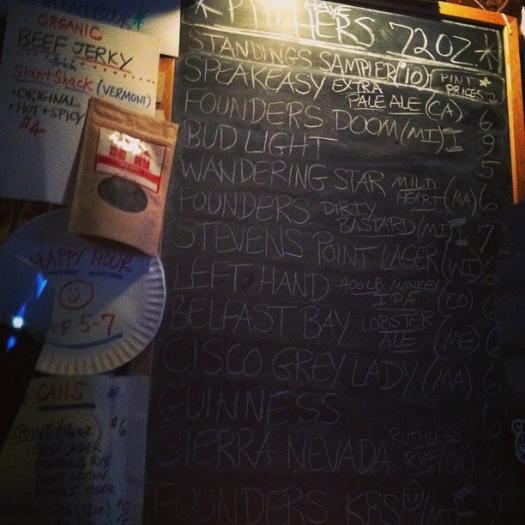 ORGANIC
BEEF JERKY
from
SlantShack (VERMONT)
• ORIGINAL
• HOT + SPICY
$4
HAPPY HOUR
M-F 5-7
CANS
(16oz) $6
WE HAVE
* PITCHERS 72OZ. *
STANDINGS SAMPLER $10 PINT PRICES
SPEAKEASY EXTRA PALE ALE (CA) 6
FOUNDERS DOOM (MI) 9
BUD LIGHT 5
WANDERING STAR MILD HEART (MA) 6
FOUNDERS DIRTY BASTARD (MI) 7
STEVENS POINT LAGER (WI) 6
LEFT HAND 400 LB. MONKEY IPA (CO) 6
BELFAST BAY LOBSTER ALE (ME) 6
CISCO GREY LADY (MA) 6
GUINNESS 6
SIERRA NEVADA RUTHLESS RYE (CA) 6
FOUNDERS KBS (MI)